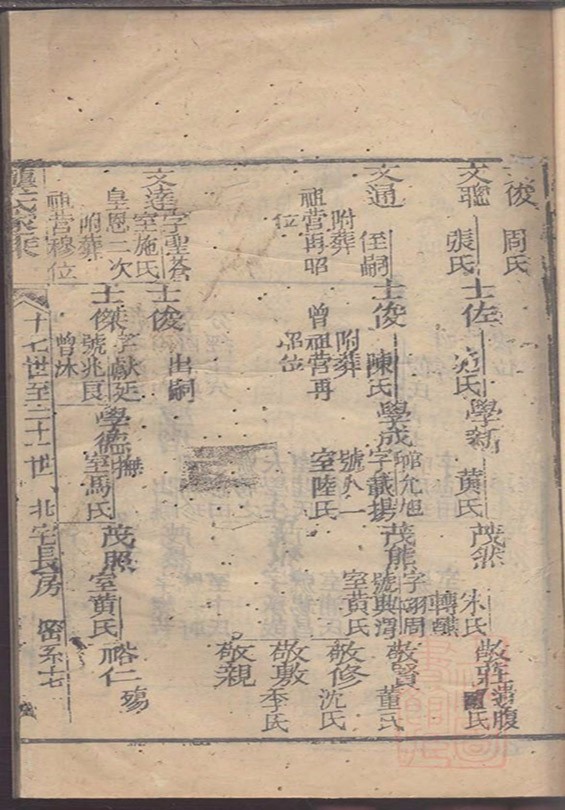 俊 周氏
文聰 張氏 士佐 范氏 學新 黃氏 茂然 宋氏 敬
文通 侄嗣 士俊 陳氏 學成 字載揚 茂熊 字翊周 號輿渭 室黃氏 敬賢 董氏
附葬祖营再昭位
附葬曾祖营再昭位
號八一 室陸氏
敬修 沈氏
敬數 季氏
敬親
文達 字聖蒼 室施氏 士俊 出嗣
皇恩二次
附葬祖营穆位
士傑 字獻延 號兆良 曾沐
學德 撫 室馬氏 茂照 室黃氏 裕仁 殤
家乘 十七世至二十一世 北宅長房 密系十七